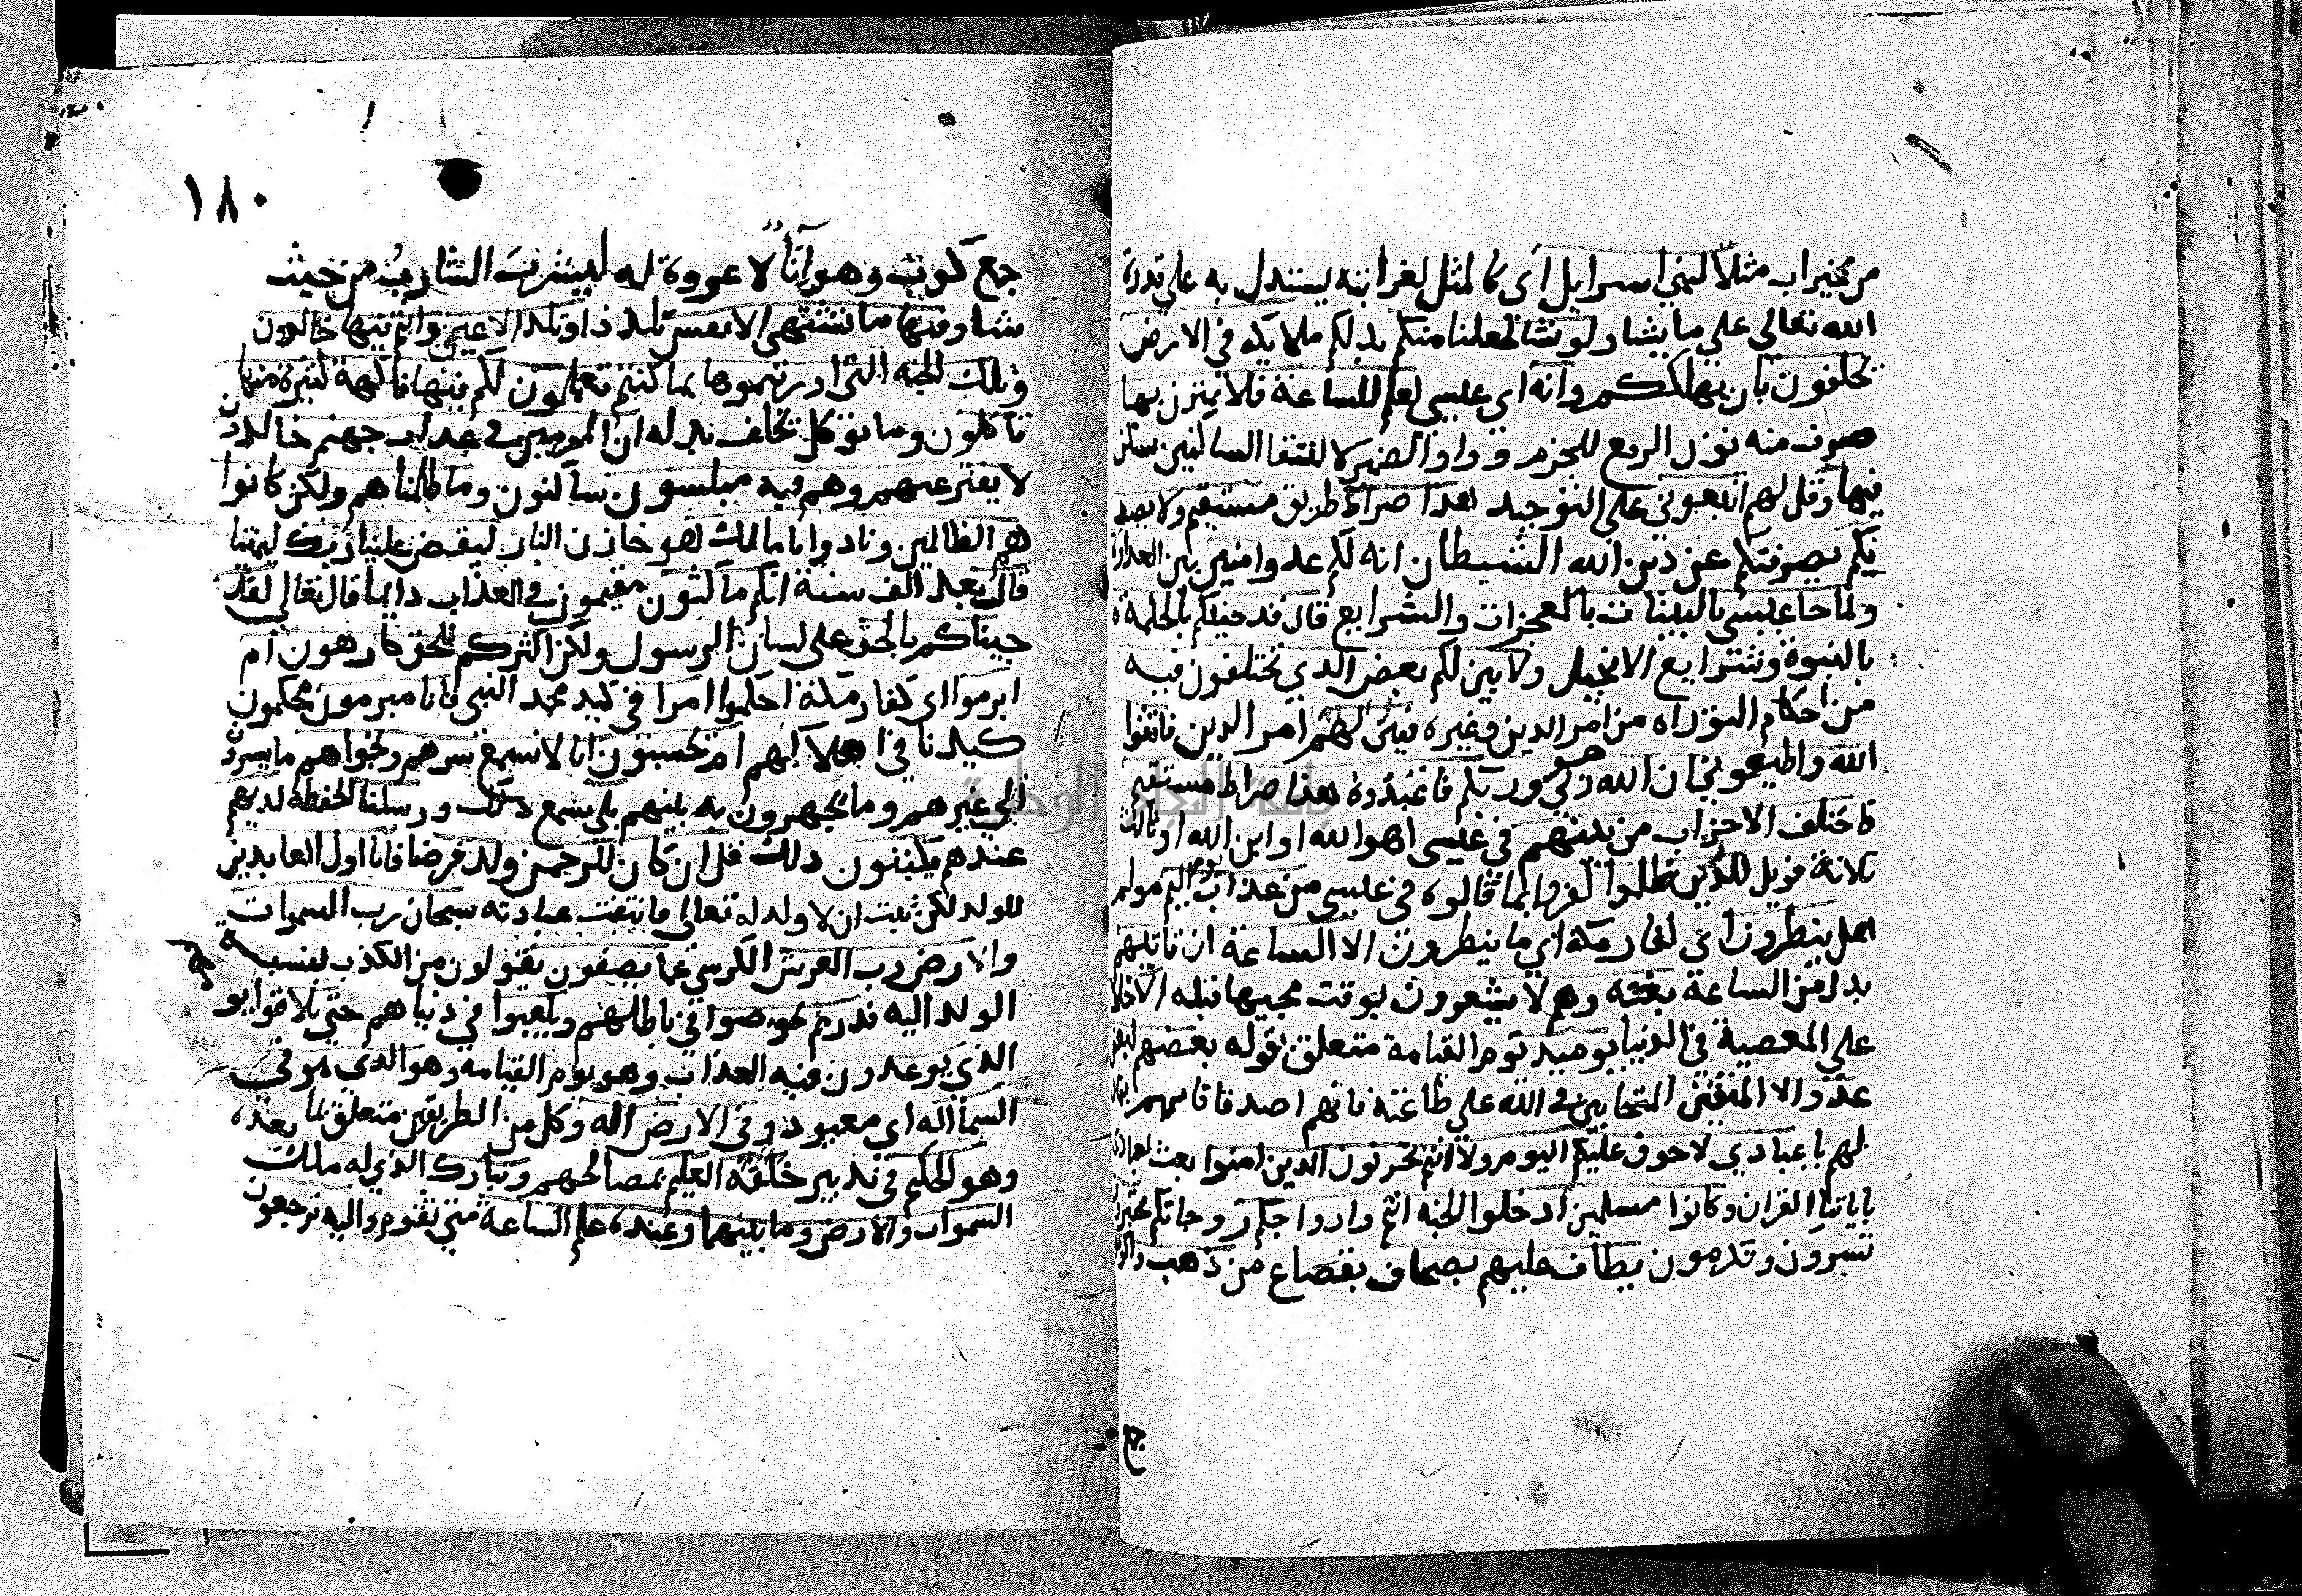 من غير اب مثلا لبني اسرايل اى كالمثل لغرابته يستدل به على قدرة
الله تعالى على ما يشا ولو نشا لجعلنا منكم بدلكم ملايكة في الارض
يخلفون بان نهلككم وانه اي عيسى لعلم للساعة فلا تمترن بها
حذف منه نون الرفع للجزم وواو الضمير لالتقا الساكنين تشكن
فيها وقل لهم اتبعوني على التوحيد هذا صراط طريق مستقيم ولا يصد
نكم يصرفنكم عن دين الله الشيطان انه لكم عدو امبين بين العداوة
ولما جا عيسى بالبينات بالمعجزات والشرايع قال قد جيتكم بالحكمة
بالنبوة وشرايع الانجيل ولابين لكم بعض الذي تختلفون فيه
من احكام التوراه من امر الدين وغيره فبين لهم امر الدين فاتقوا
الله واطيعوني ان الله هو ربي وربكم فاعبدوه هذا صراط مستقيم
فاختلف الاحزاب من بينهم في عيسى اهو الله او ابن الله او ثالث
ثلاثة فويل للذين ظلموا كفروا بما قالوه في عيسى من عذاب يوم اليم مولم
هل ينظرون اي كفار مكة اي ما ينظرون الا الساعة ان تاتيهم
بدل من الساعة بغتة وهم لا يشعرون بوقت مجيها قبله الاخلا
على المعصية في الدنيا يوميذ يوم القيامة متعلق بقوله بعضهم لبعض
عدو الا المتقين المتحابين في الله على طاعته فانهم اصدقا
لهم يا عبادي لا خوف عليكم اليوم ولا انتم تحزنون الذين امنوا نعت لعبادي
باياتنا القران وكانوا مسلمين ادخلوا الجنة انتم وازواجكم زوجاتكم تحبرون
تسرون وتكرمون يطاف عليهم بصحاف بقصاع من ذهب واكواب
جمع
١٨٠
جمع كوب وهو انا لا عروة له ليشرب الشارب من حيث
شا وفيها ما تشتهي الانفس تلذذا وتلذ الاعين وانتم فيها خالدون
وتلك الجنة التي اورثتموها بما كنتم تعملون لكم فيها فاكهة كثيرة منها
تاكلون وما يوكل يخلف بدله ان المجرمين في عذاب جهنم خالدون
لا يفتر عنهم وهم فيه مبلسون ساكتون وما ظلمناهم ولكن كانوا
هم الظالمين ونادوا يا مالك هو خازن النار ليقض علينا ربك ليمتنا
قال بعد الف سنة انكم ماكثون مقيمون في العذاب دايما قال تعالى لقد
جيناكم بالحق على لسان الرسول ولكن اكثركم للحق كارهون ام
ابرموا اي كفار مكة احكموا امرا في كيد محمد النبي فانا مبرمون محكمون
كيدنا في اهلاكهم ام يحسبون انا لا نسمع سرهم ونجواهم ما يسرون
الى غيرهم وما يجهرون به بينهم بلى نسمع ذلك ورسلنا الحفظة لديهم
عندهم يكتبون ذلك قل ان كان للرحمن ولد فرضا فانا اول العابدين
للولد لكن ثبت ان لا ولد له تعالى فانتفت عبادته سبحان رب السموات
والارض رب العرش الكرسي عما يصفون يقولون من الكذب بنسبة
الولد اليه فذرهم يخوضوا في باطلهم ويلعبوا في دنياهم حتى يلاقوا يو
الذي يوعدون فيه العذاب وهو يوم القيامة وهو الذي هو في
السما اله اي معبود وفي الارض اله وكل من الظرفين متعلق بما بعده
وهو الحكيم في تدبير خلقه العليم بمصالحهم وتبارك الذي له ملك
السموات والارض وما بينهما وعنده علم الساعة متى تقوم واليه ترجعون